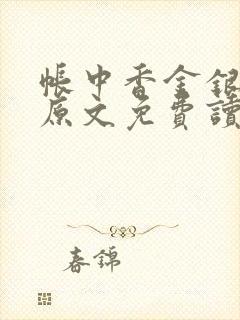 帳中香金銀
原文免費讀
春錦